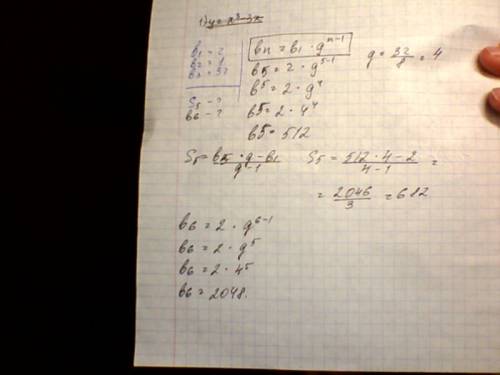 1) y = x² - 3x
b₁ = 2
b₂ = 8
b₃ = 32
S₅ - ?
b₆ - ?
bn = b₁ · g^{n-1}
g = 32/8 = 4
b5 = 2 · g^{5-1}
b5 = 2 · g⁴
b5 = 2 · 4⁴
b5 = 512
S₅ = (b5 · g - b₁)/(g - 1) S₅ = (512 · 4 - 2)/(4 - 1) =
= 2046/3 = 682
b₆ = 2 · g^{6-1}
b₆ = 2 · g⁵
b₆ = 2 · 4⁵
b₆ = 2048.